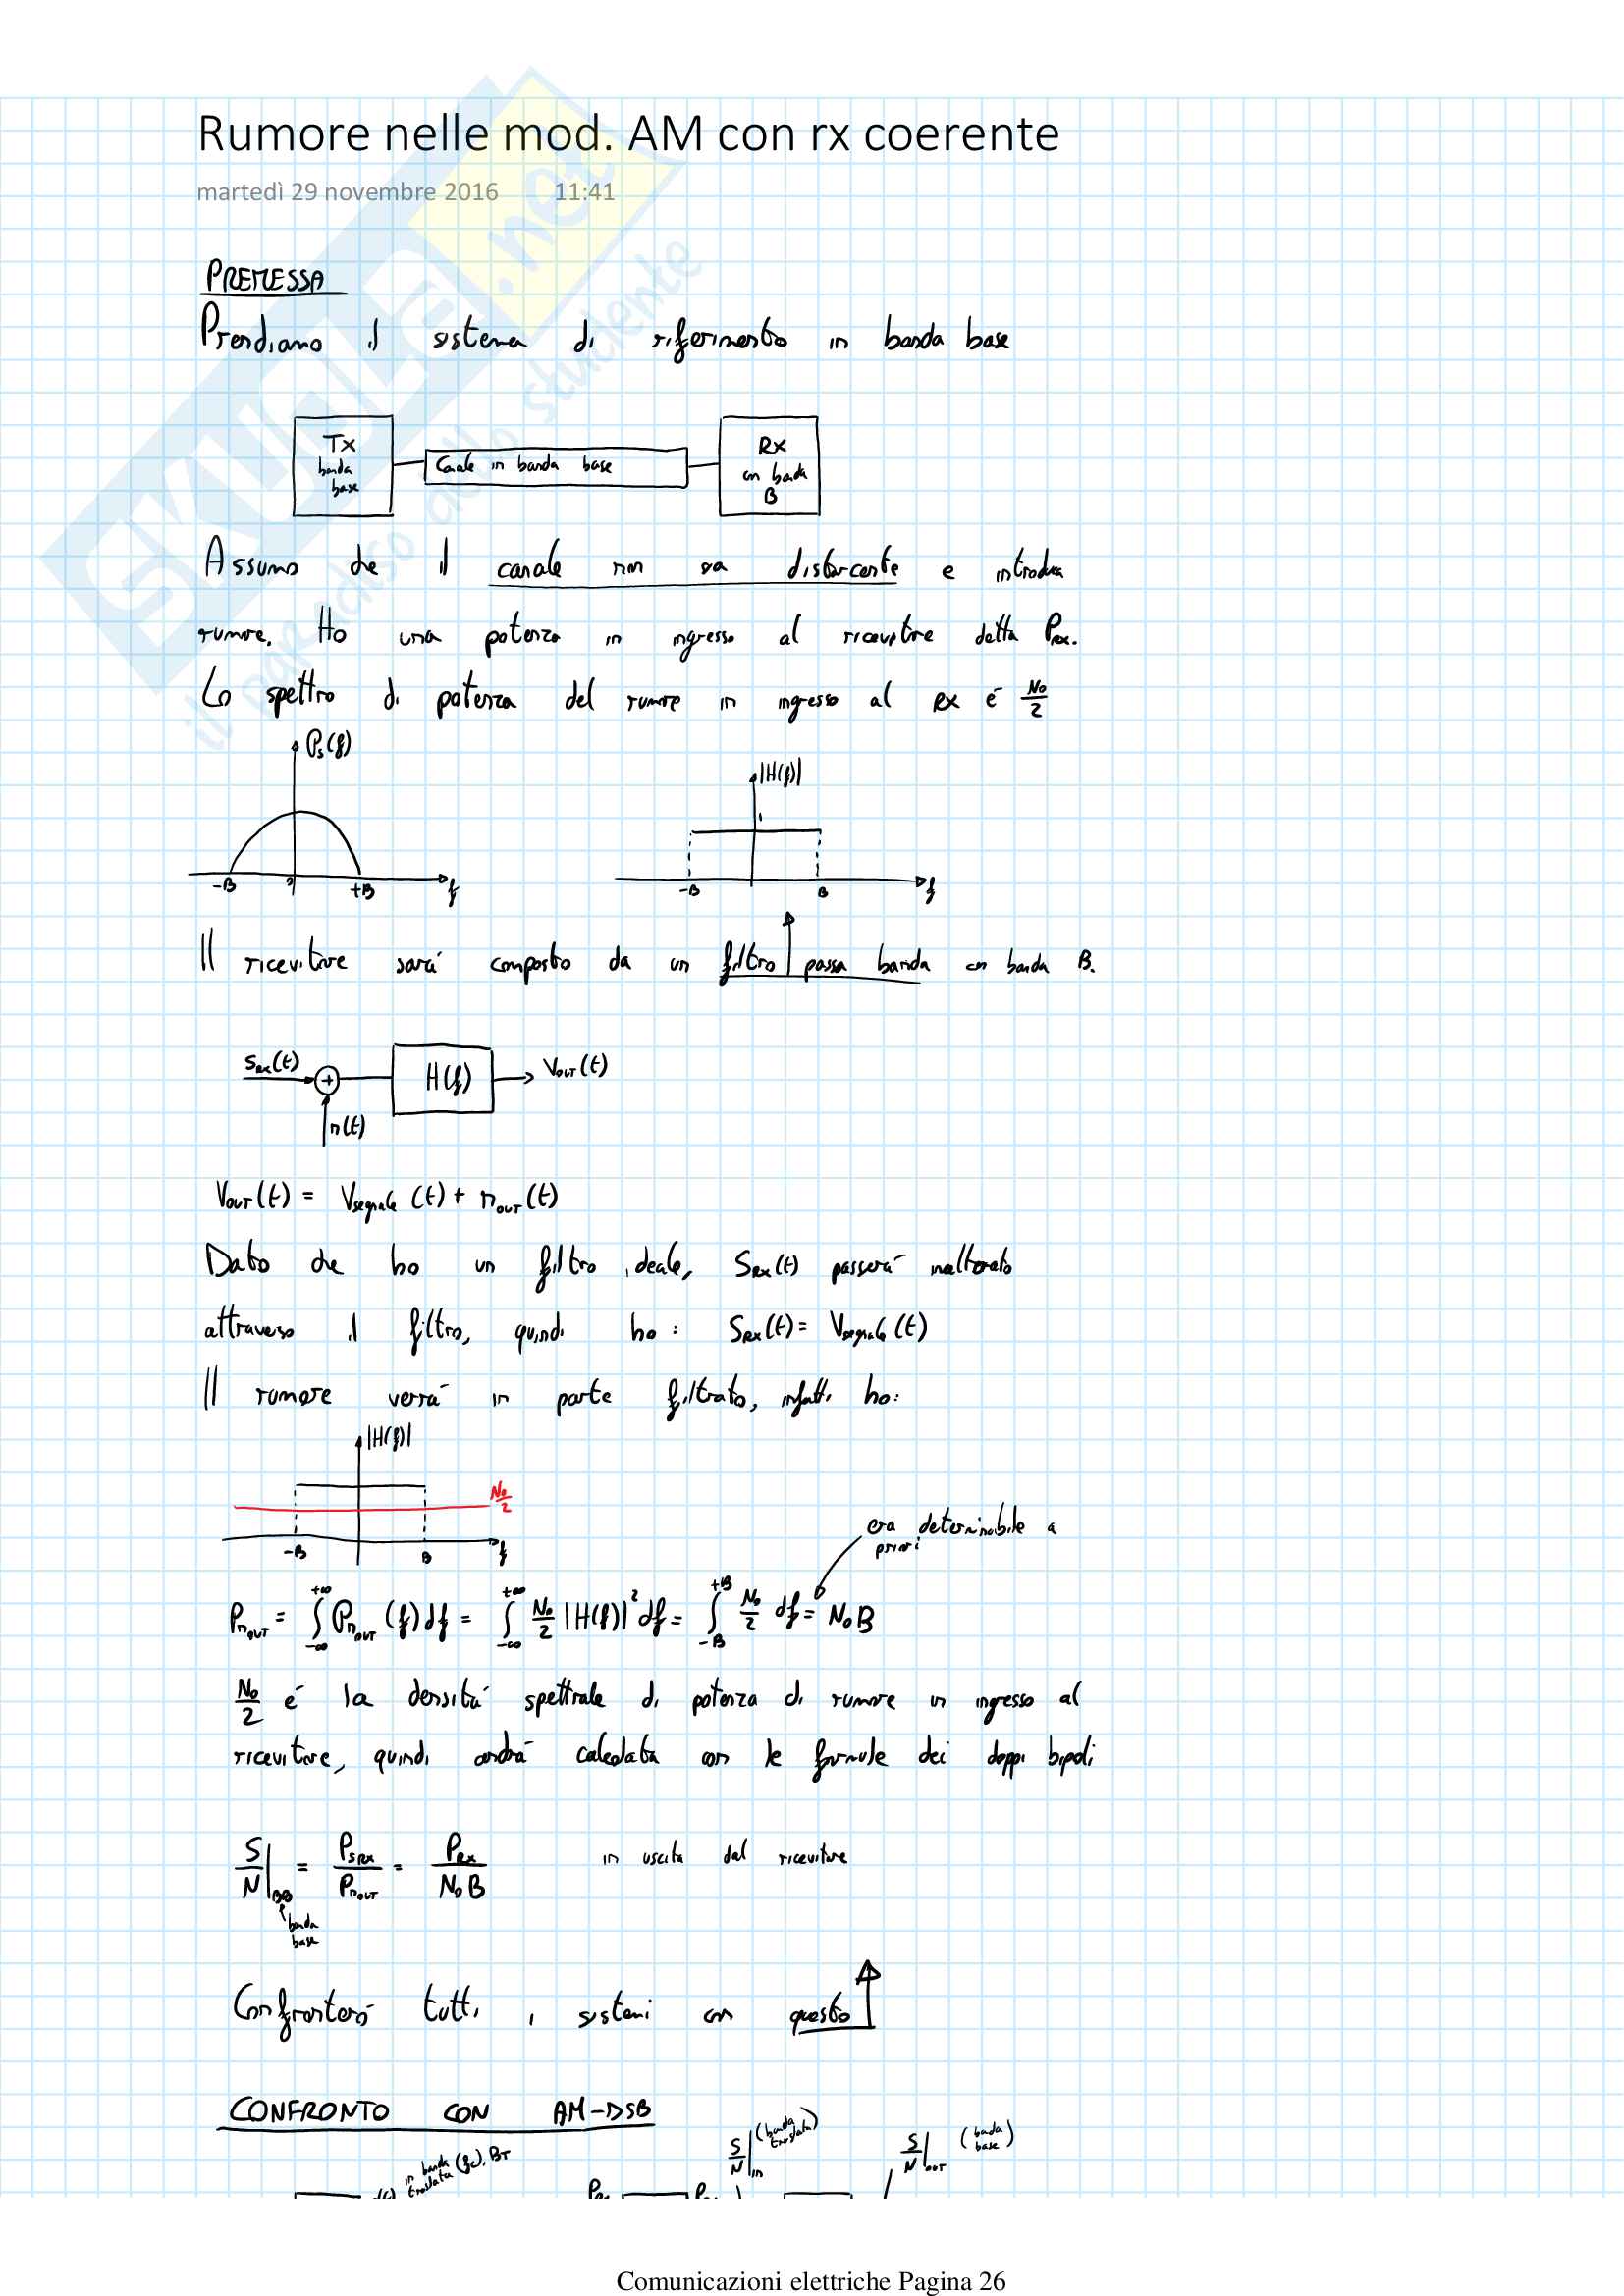 Rumore nelle mod. AM con rx coerente
martedì 29 novembre 2016 11:41
SKUOLA.net
il paradiso dello studente
PREMESSA
Prendiamo il sistema di riferimento in banda base
Tx
banda
base
Canale in banda base
Rx
con banda
B
Assumo che il canale non sia distorcente e introduca
rumore. Ho una potenza in ingresso al ricevitore detta P_RX.
Lo spettro di potenza del rumore in ingresso al RX é N₀/2
P_S(f)
-B 0 +B f
|H(f)|
1
-B B f
Il ricevitore sará composto da un filtro passa banda con banda B.
S_RX(t) + H(f) V_OUT(t)
n(t)
V_OUT(t) = V_segnale(t) + n_OUT(t)
Dato che ho un filtro ideale, S_RX(t) passerá inalterato
attraverso il filtro, quindi ho: S_RX(t) = V_segnale(t)
Il rumore verrá in parte filtrato, infatti ho:
|H(f)|
N₀/2
-B B f
era determinabile a
priori
P_nOUT = ∫_-∞^+∞ P_nOUT(f) df = ∫_-∞^+∞ N₀/2 |H(f)|² df = ∫_-B^+B N₀/2 df = N₀B
N₀/2 é la densitá spettrale di potenza di rumore in ingresso al
ricevitore, quindi andrá calcolata con le formule dei doppi bipoli
S/N|_BB = P_SRX/P_nOUT = P_RX/N₀B in uscita dal ricevitore
banda
base
Confronteró tutti i sistemi con questo
CONFRONTO CON AM-DSB
in banda (fc), B_T
traslata
S/N|_in (banda traslata)
S/N|_OUT (banda base)
Comunicazioni elettriche Pagina 26